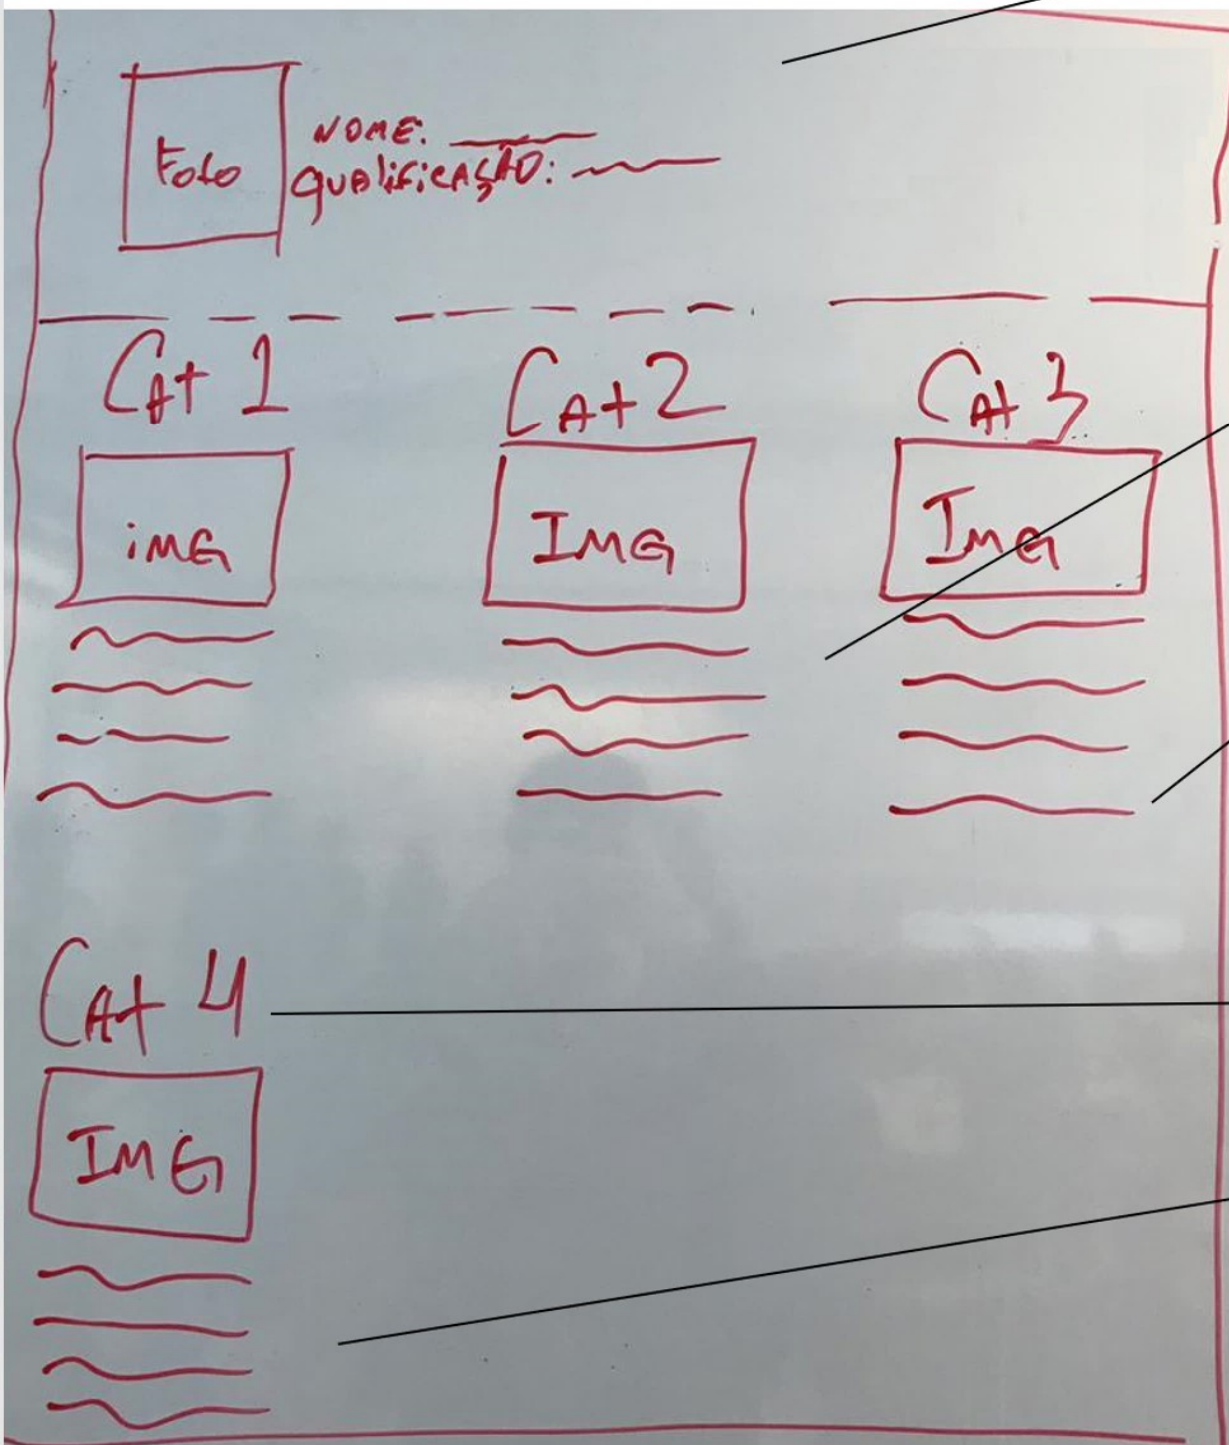 Foto
NOME:
QUALIFICAÇÃO:
CAt 1
CAt 2
CAt 3
iMG
IMG
IMG
CAt 4
IMG